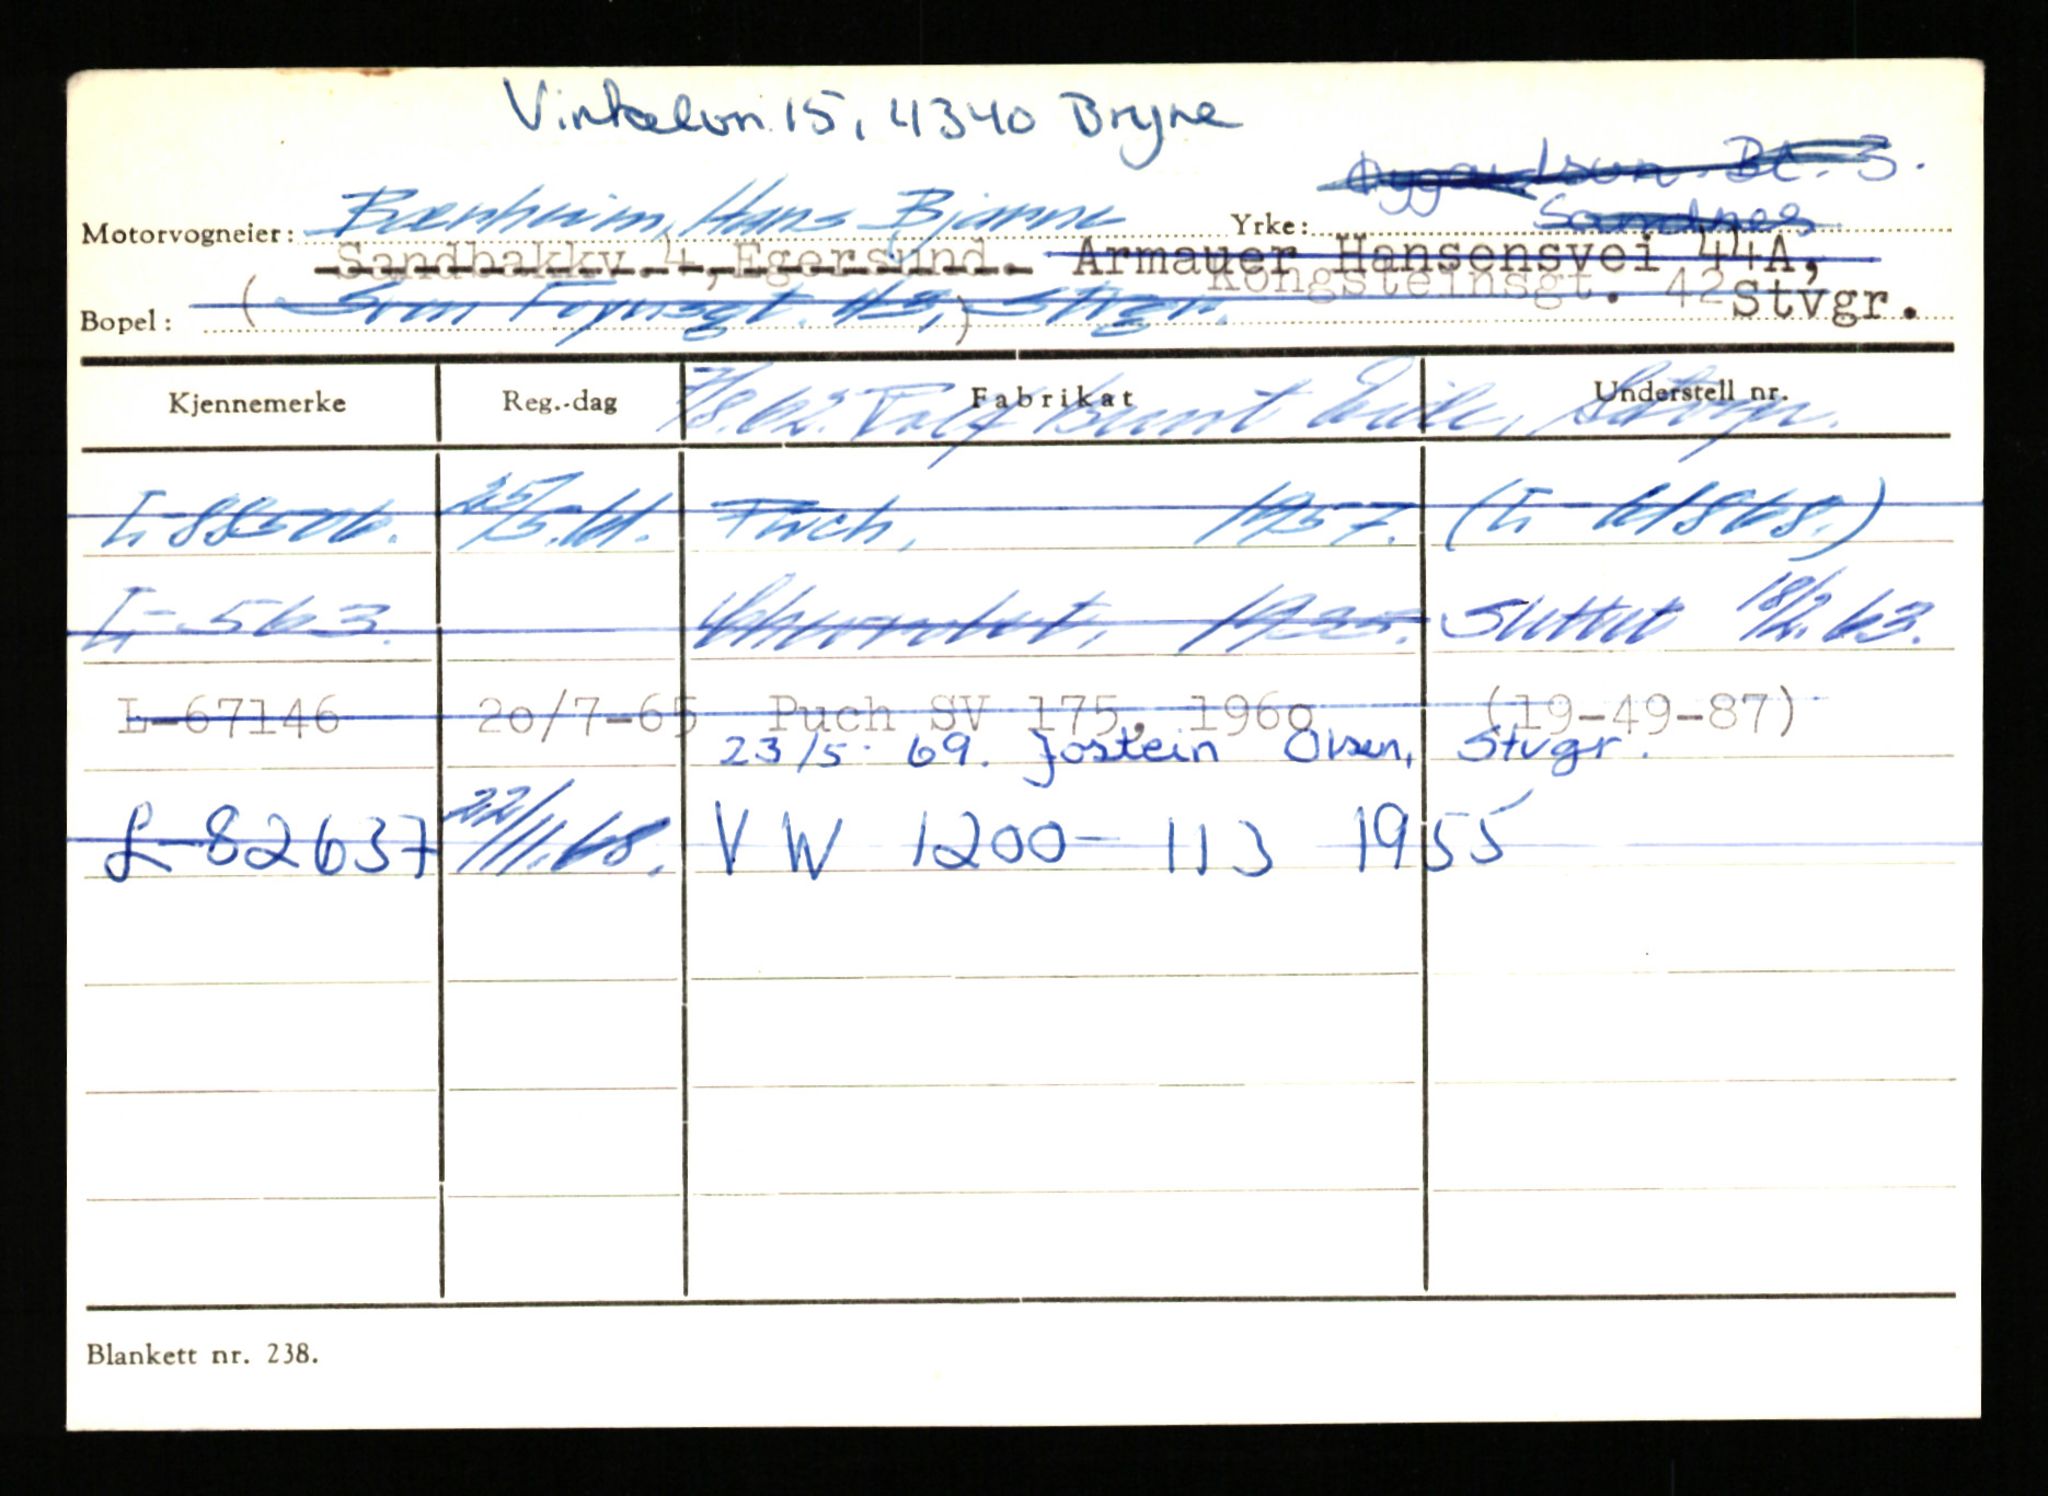 Vinkelvn. 15, 4340 Bryne
Bt. 3.
Motorvogneier: Bærheim, Hans Bjarne Yrke: Sandnes
Sandbakkv. 4, Egersund. Armauer Hansensvei 44A,
Kongsteinsgt. 42 Stvgr.
Bopel: (Sven Foynsgt. 43,) Stvgr.
Kjennemerke Reg.-dag Fabrikat Understell nr.
Bernt Eide, Stvgr.
L-88506. 25/5.61. Puch, 1957. (L-61868.)
L-563. Chevrolet, 1935. Slettet 18/2.63.
L-67146 20/7-65 Puch SV 175, 1960 (19-49-87)
23/5-69. Jostein Olsen, Stvgr.
L-82637 22/11.68. VW 1200-113 1955
Blankett nr. 238.